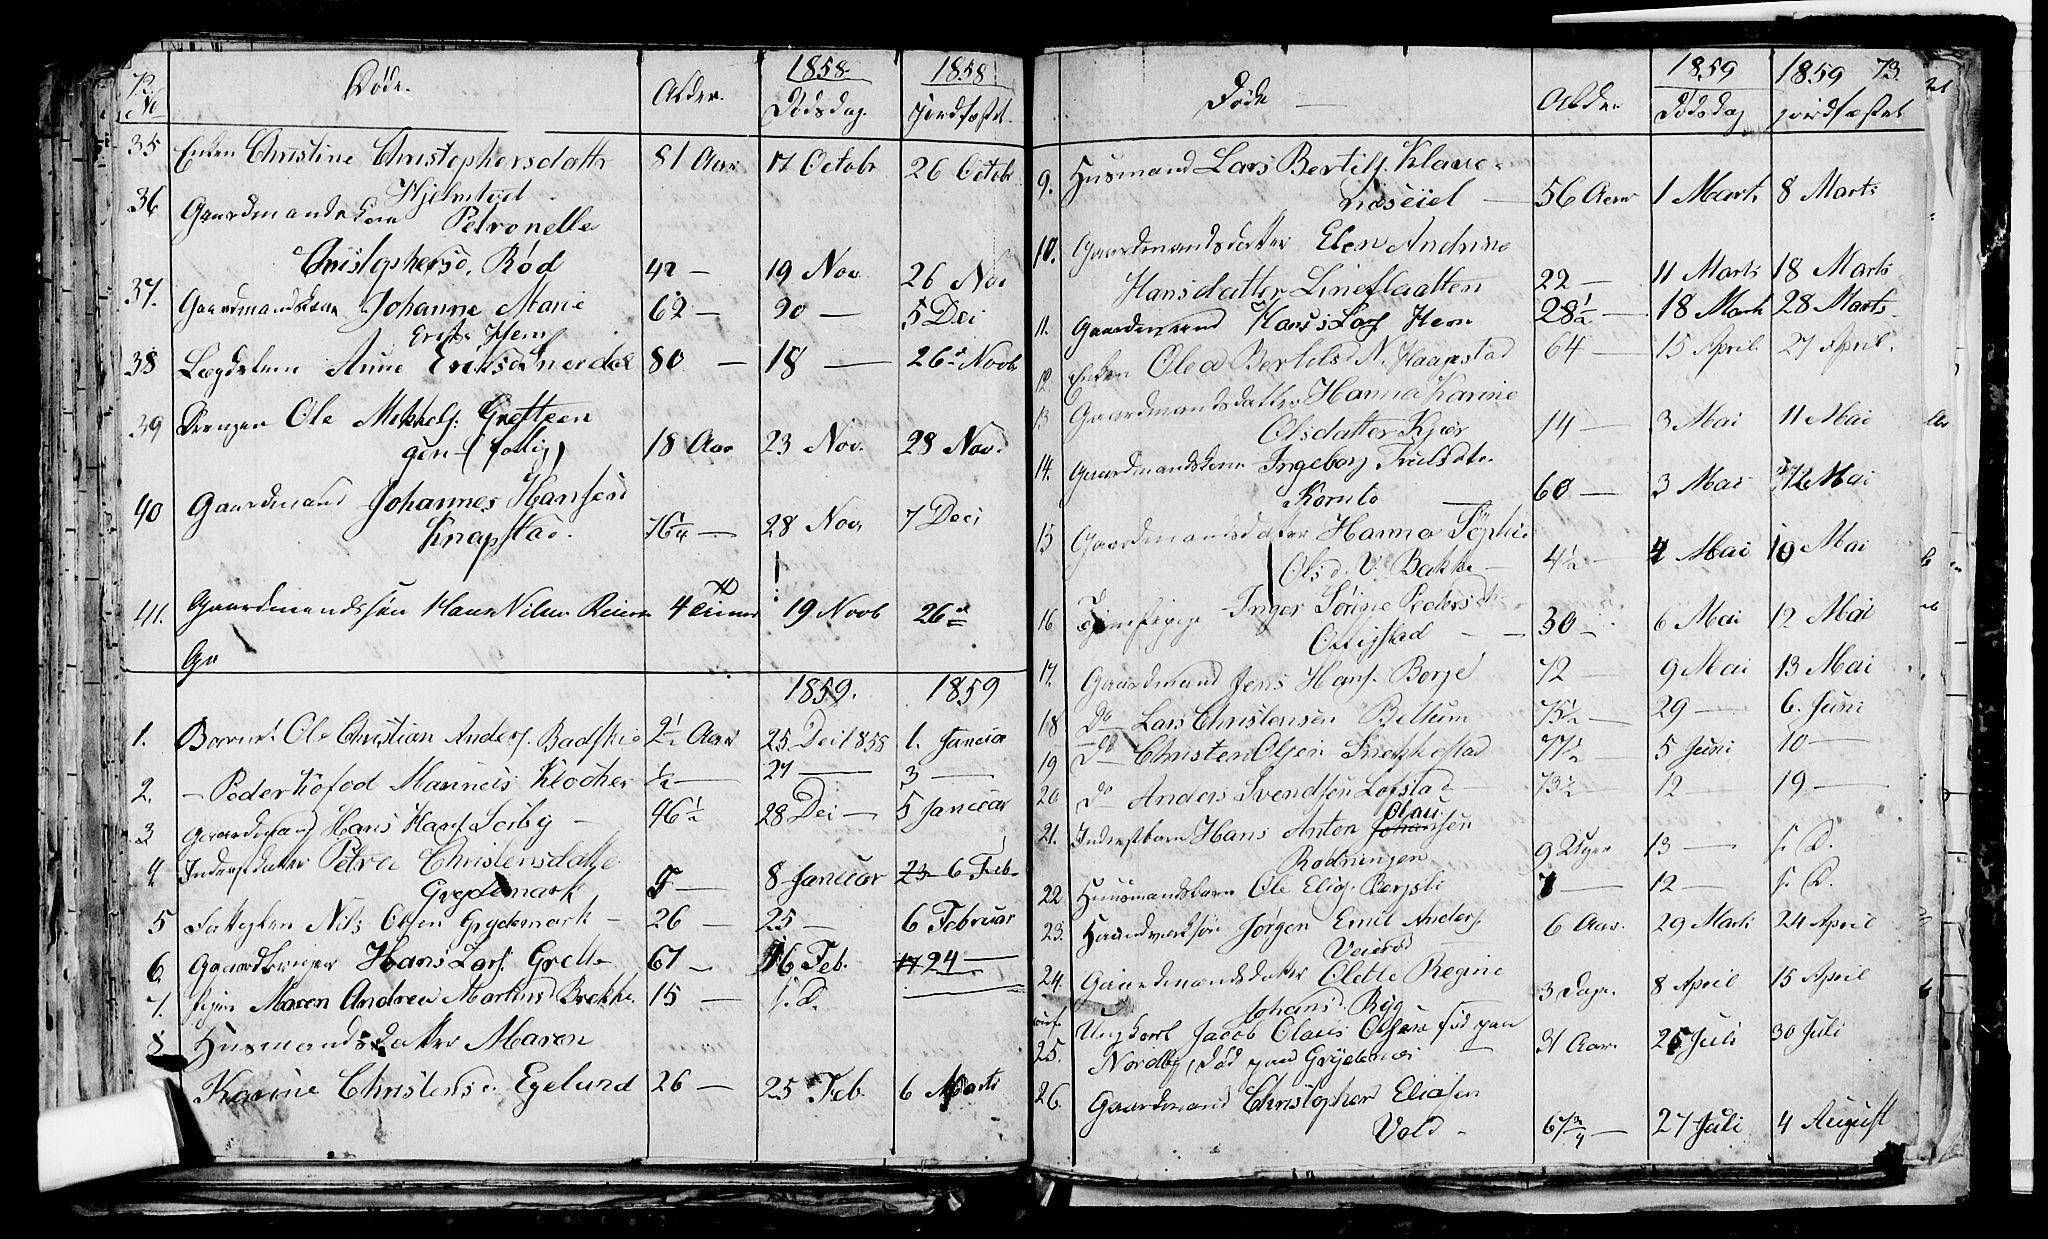 72.
No
Døde.
Alder.
1858
Dødsdag.
1858
Jordfæstet.
35 Enken Christine Christophersdattr 81 Aar 17 Octobr 26 Octobr
Hjelmtvet
36 Gaardmandskone Petronelle
Christophersd. Rød 42 — 19 Nov. 26 Nov
37. Gaardmandskone Johanne Marie 62 — 20 — 5 Dec
Eriks. Hem
38 Lægdslem Anne Eriksd 80 — 18 — 26 Novb
39 Drengen Ole Mikkels.
gen (fattig) 18 Aar 23 Nov. 28 Nov.
40 Gaardmand Johannes Hansen
Knapstad. 76 1/4 — 28 Nov. 7 Dec
41. Gaardmandssøn Hans Nilsen 4 Timer 19 Novb 26
1859. 1859
1. Barnet Ole Christian Anders. 2 1/2 Aar 25 Dec 1858 1. Januar
2. — Peder Kofod Klocker 1/2 — 27 — 3 —
3 Gaardmand Hans Hans. Sørby — 46 1/2 28 Dec — 5 Januar
4. Inderstdatter Petrea Christensdatte
Grydemark — 8 Januar 23 6 Feb
5 Fattiglem Nils Olsen Grydemork — 26 — 25 — 6 Februar
6. Gaardbruger Hans Lars. 67 — 16 Feb. 17 24 —
7. Pigen Maren Andrea Martinsd Brekke 15 — s. D.
8 Husmandsdatter Maren
Karine Christensd. Egelund 26 — 25 Feb. 6 Marts
Døde —
Alder
1859
Dødsdag
1859
jordfæstet
73.
9. Husmand Lars Bertils. Klave-
næseiet — 56 Aar 1 Marts 8 Marts
10. Gaardmandsdatter Elen Andrine
Hansdatter Lineflaatten 22 — 11 Marts 18 Marts
11. Gaardmand Hans Lars. Hem 28 1/2 — 18 Marts 28 Marts
12. Enken Olea Bertelsd N. Knapstad 64 — 15 April 27 April.
13 Gaardmandsdatter Hanna Karine
Olsdatter Kjær 14 — 3 Mai 11 Mai
14. Gaardmandskone Ingeborg Trulsdt.
— 60 — 3 Mai 12 Mai
15 Gaardmandsdatter Hanna Sophie
Olsd. V. Bakke — 4 1/2 — 4 Mai 10 Mai
16 Inger Sørine Pedersdt.
Ottigstad — 30 — 6 Mai 12 Mai
17. Gaardmand Jens Hans. Borge 72 — 9 Mai 13 Mai
18 Do Lars Christensen 75 1/2 — 29 — 6. Juni
19 Do Christen Olsen 77 1/2 — 5 Juni 10 —
20 Do Anders Svendsen Løfstad 73 1/2 — 12 — 19 —
Olaus
21. Inderstbarn Hans Anton Johansen
Rødningen 9 Uger 13 — s. D.
22 Huusmandsbarn Ole Elias. 7 — 12 — s. D.
23. Haandværkssøn Jørgen Emil Anders.
6 Aar. 29 Marts 24 April
24. Gaardmandsdatter Olette Regine
Johansd. Ryg 3 Dage. 8 April 15 April
25. Ungkarl Jacob Olaus Olsen født paa
Nordby, død paa 31 Aar. 25 Juli 30 Juli
26. Gaardmand Christopher Eliasen
Vold — 67 3/4 — 27 Juli 4 August